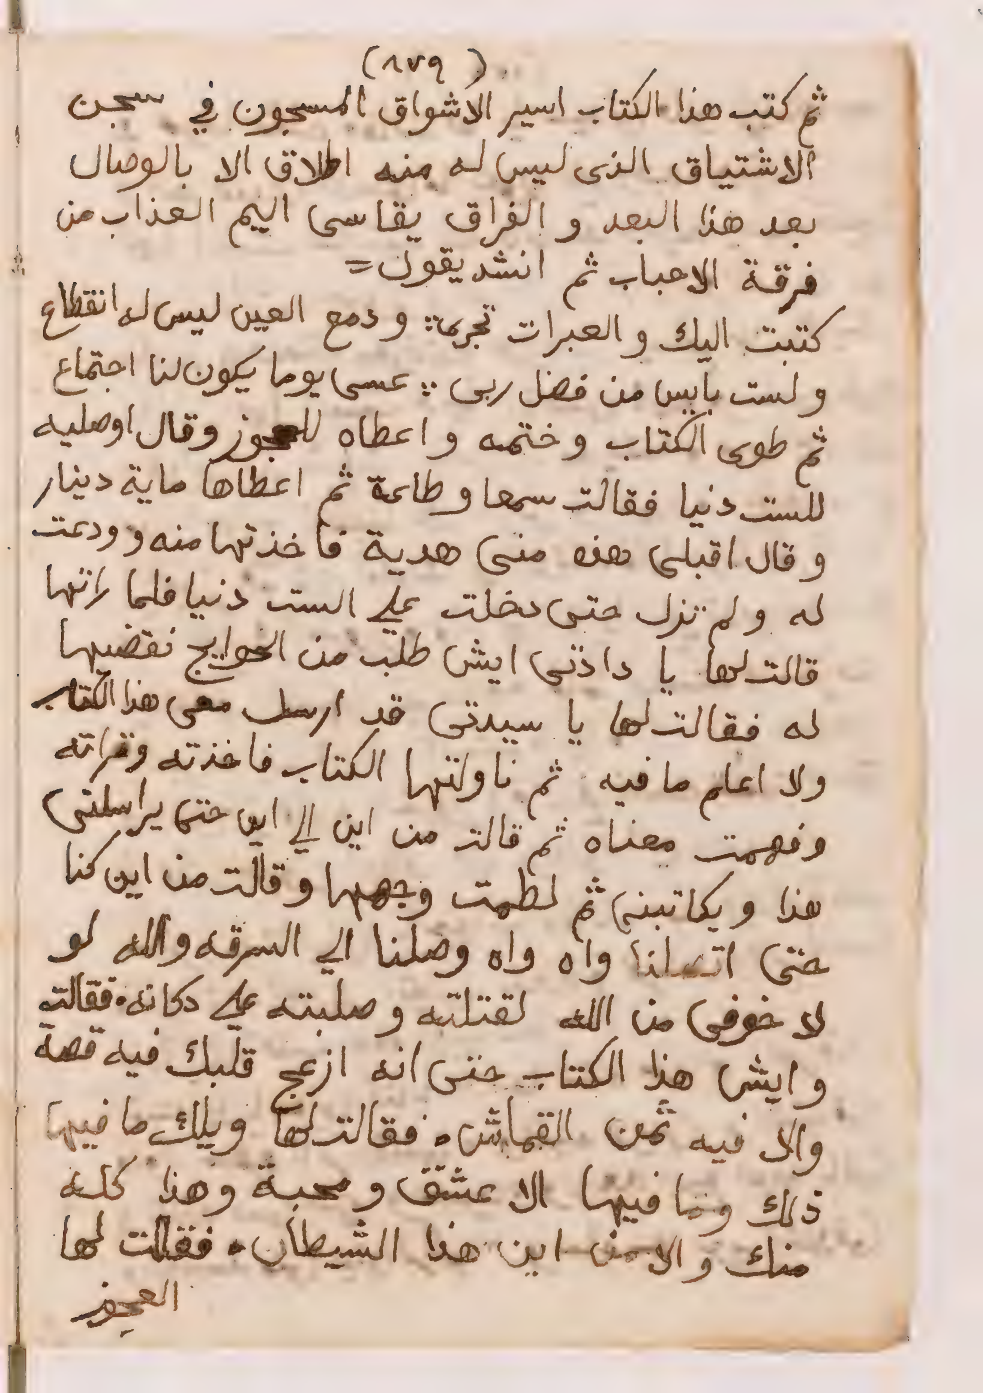 (٨٧٩)
ثم كتب هذا الكتاب اسير الاشواق المسجون في سجن
الاشتياق الذى ليس له منه اطلاق الا بالوصال
بعد هذا البعد و الفراق يقاسى اليم العذاب من
فرقة الاحباب ثم انشد يقول =
كتبت اليك و العبرات تجرى :: و دمع العين ليس له انقطاع
و لست بايس من فضل ربى :: عسى يوما يكون لنا اجتماع
ثم طوى الكتاب و ختمه و اعطاه للعجوز وقال اوصليه
للست دنيا فقالت سمعا و طاعة ثم اعطاها ماية دينار
و قال اقبلى هذه منى هدية فاخذتها منه و ودعت
له و لم تزل حتى دخلت على الست دنيا فلما راتها
قالت لها يا دادتى ايش طلب من الحوايج نقضيها
له فقالت لها يا سيدتى قد ارسل معى هذا الكتاب
ولا اعلم ما فيه ثم ناولتها الكتاب فاخذته وقراته
و فهمت معناه ثم قالت من اين الي اين حتى يراسلنى
هذا و يكاتبنى ثم لطمت وجهها و قالت من اين كنا
حتى اتصلنا واه واه وصلنا الي السرقه والله لو
لا خوفى من الله لقتلته و صلبته على دكانه ٠ فقالت
و ايش هذا الكتاب حتى انه ازعج قلبك فيه قصة
والا فيه ثمن القماش ٠ فقالت لها ويلك ما فيها
ذلك و ما فيها الا عشق و محبة وهذا كله
منك و الا من اين هذا الشيطان ٠ فقالت لها
العجوز